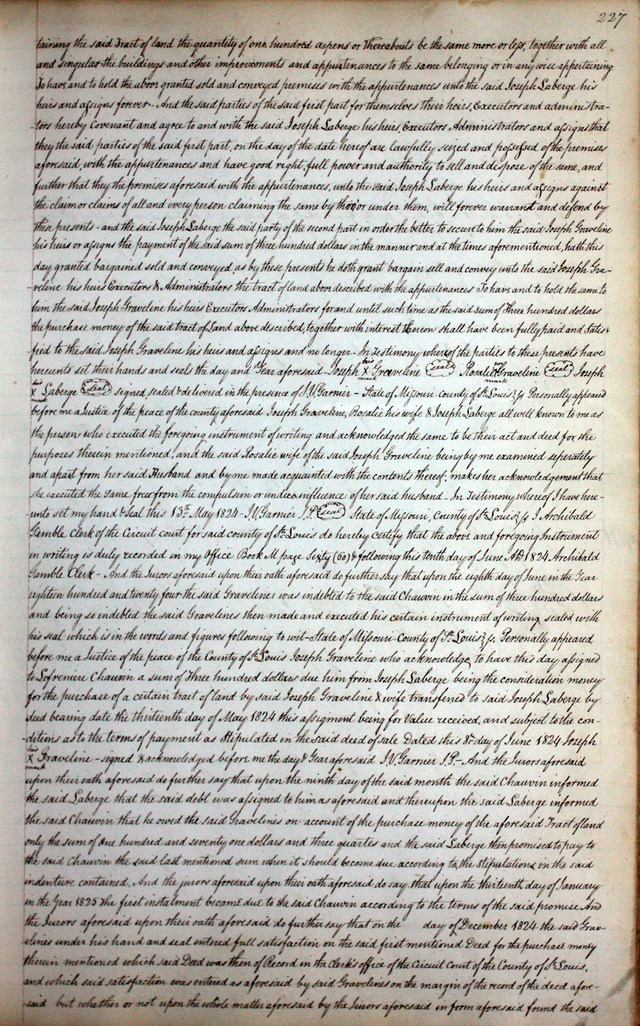 227
taining the said Tract of land the quantity of one hundred aspens or thereabouts be the same more or less, together with all
and singular the buildings and other improvements and appurtenances to the same belonging or in any wise appertaining
To have and to hold the above granted sold and conveyed premises with the appurtenances unto the said Joseph Laberge his
heirs and assigns forever - And the said parties of the first part for themselves their heirs, Executors and administra-
tors hereby Covenant and agree to and with the said Joseph Laberge his heirs, Executors Administrators and assigns that
they the said parties of the said first part, on the day of the date hereof are lawfully seized and possessed of the premises
aforesaid, with the appurtenances and have good right, full power and authority to sell and dispose of the same, and
further that they the premises aforesaid with the appurtenances, unto the said Joseph Laberge his heirs and assigns against
the claim or claims of all and every person claiming the same by thro' or under them, will forever warrant and defend by
these presents - and the said Joseph Laberge the said party of the second part in order the better to secure to him the said Joseph Graveline
his heirs or assigns the payment of the said sum of three hundred dollars in the manner and at the times aforementioned, hath this
day granted bargained sold and conveyed, as by these presents he doth grant bargain sell and convey unto the said Joseph Gra-
veline his heirs Executors & Administrators the tract of land above described with the appurtenances To have and to hold the same to
him the said Joseph Graveline his heirs Executors Administrators for and until such time as the said sum of Three hundred dollars
the purchase money of the said tract of Land above described, together with interest thereon shall have been fully paid and satis-
fied to the said Joseph Graveline his heirs and assigns and no longer - In Testimony whereof the parties to these presents have
hereunto set their hands and seals the day and Year aforesaid - Joseph his X mark Graveline (seal) Rosalie her X mark Graveline (seal) Joseph
his X mark Laberge (seal) signed sealed & delivered in the presence of J.V. Garnier - State of Missouri county of St. Louis ss Personally appeared
before me a Justice of the peace of the county aforesaid Joseph Graveline, Rosalie his wife & Joseph Laberge all well known to me as
the person who executed the foregoing instrument of writing and acknowledged the same to be their act and deed for the
purposes therein mentioned, and the said Rosalie wife of the said Joseph Graveline being by me examined seperately
and apart from her said Husband and by me made acquainted with the contents thereof, makes her acknowledgement that
she executed the same free from the compulsion or undue influence of her said husband. In Testimony whereof I have here-
unto set my hand & Seal this 13th May 1824 - J.V. Garnier J.P. (seal) State of Missouri, County of St. Louis, ss I Archibald
Gamble Clerk of the Circuit court for said county of St. Louis do hereby certify that the above and foregoing Instrument
in writing is duly recorded in my Office Book M page Sixty (60) & following this tenth day of June AD 1824 Archibald
Gamble Clerk - And the Jurors aforesaid upon their oath aforesaid do further say that upon the eighth day of June in the Year
eighteen hundred and twenty four the said Gravelines was indebted to the said Chauvin in the sum of three hundred dollars
and being so indebted the said Gravelines then made and executed his certain instrument of writing sealed with
his seal which is in the words and figures following to wit - State of Missouri County of St. Louis, ss, Personally appeared
before me a Justice of the peace of the County of St. Louis Joseph Graveline who acknowledge, to have this day assigned
to Lefreniere Chauvin a sum of Three hundred dollars due him from Joseph Laberge being the consideration money
for the purchase of a certain tract of land by said Joseph Graveline & wife transfered to said Joseph Laberge by
deed bearing date the thirteenth day of May 1824 this assigment being for Value received, and subject to the con-
ditions as to the terms of payment as Stipulated in the said deed of sale. Dated this 8th day of June 1824 Joseph
his X mark Graveline - signed & acknowledged before me the day & Year aforesaid J.V. Garnier J.P. - And the Jurors aforesaid
upon their oath aforesaid do further say that upon the ninth day of the said month the said Chauvin informed
the said Laberge that the said debt was assigned to him as aforesaid and thereupon the said Laberge informed
the said Chauvin that he owed the said Gravelines on account of the purchase money of the aforesaid Tract of land
only the sum of one hundred and seventy one dollars and three quarters and the said Laberge then promised to pay to
the said Chauvin the said last mentioned sum when it should become due according to the Stipulations in the said
indenture contained, And the jurors aforesaid upon their oath aforesaid do say that upon the thirteenth day of January
in the Year 1825 the first instalment became due to the said Chauvin according to the terms of the said promise And
the Jurors aforesaid upon their oath aforesaid do further say that on the day of December 1824 the said Grav-
elines under his hand and seal entered full satisfaction on the said first mentioned Deed for the purchase money
therein mentioned which said Deed was then of Record in the Clerk's office of the Circuit Court of the County of St. Louis,
and which said satisfaction was entered as aforesaid by said Gravelines on the margin of the record of the deed afore-
said but whether or not upon the whole matter aforesaid by the Jurors aforesaid in form aforesaid found the said